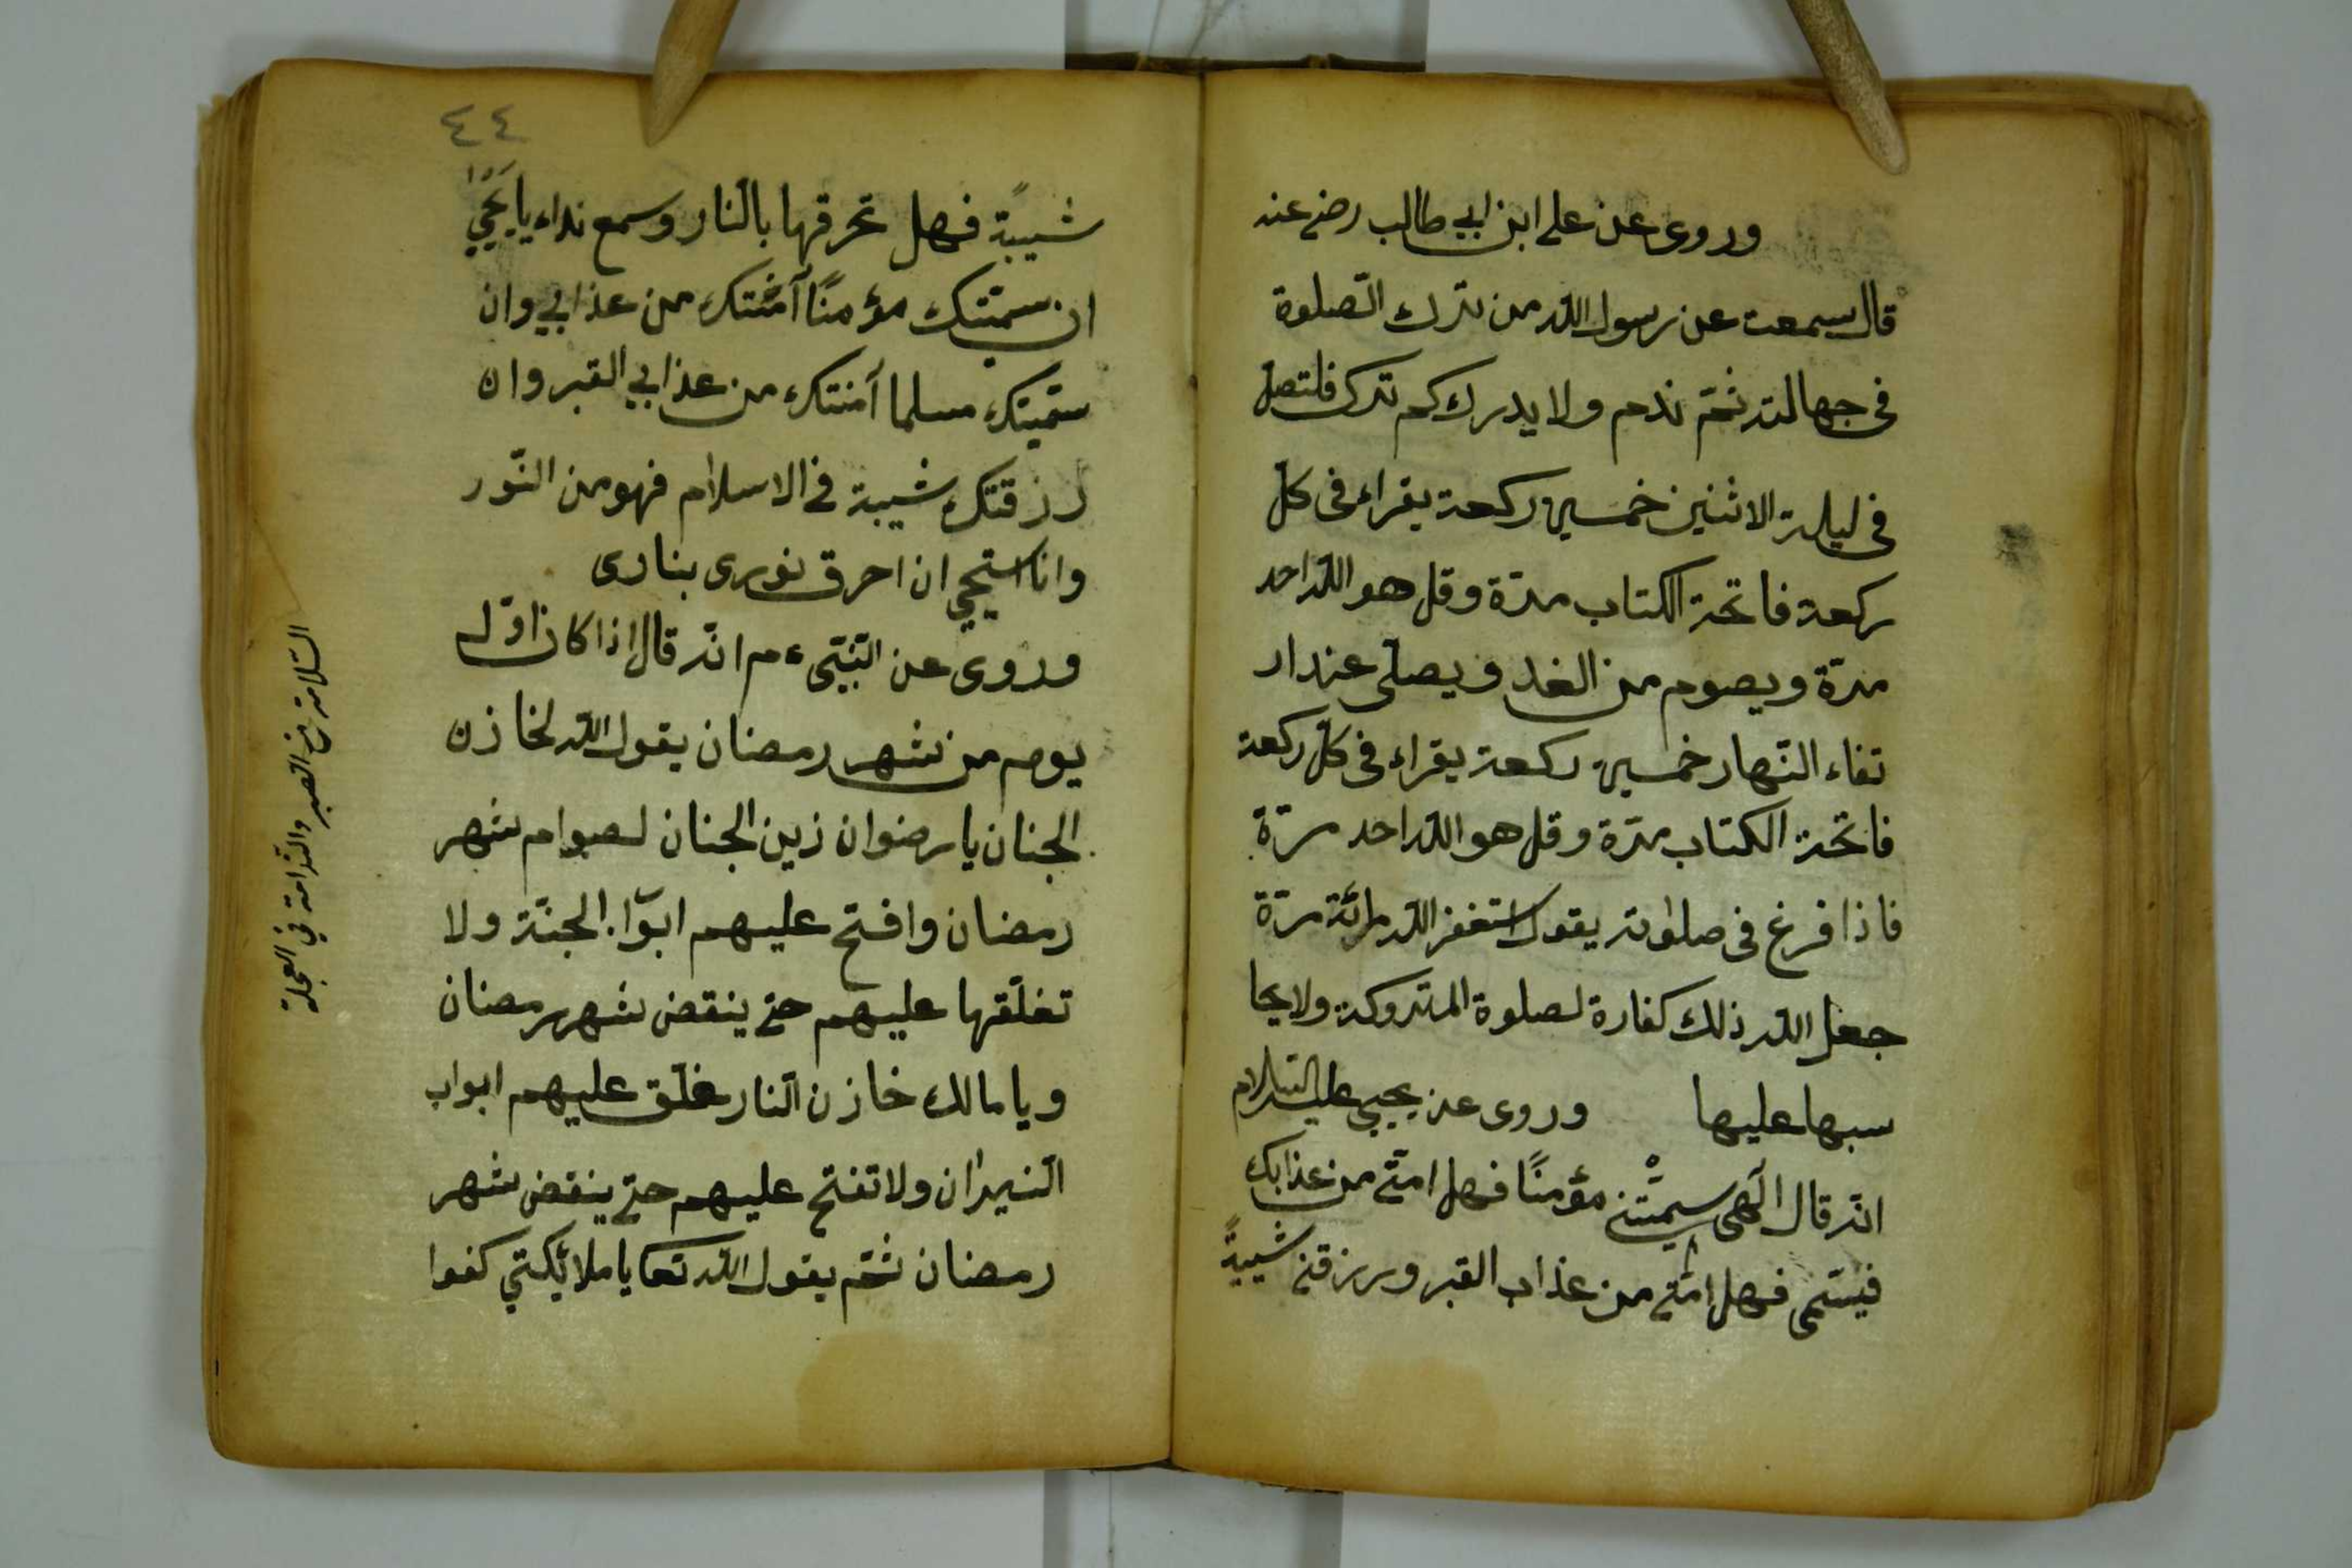 وروى عن على ابن ابي طالب رضى عنه
قال سمعت عن رسول الله من ترك الصّلوة
فى جهالته ثمّ ندم ولا يدرك كم ترك فلتصل
فى ليلة الاثنين خمسين ركعة يقراء فى كلّ
ركعة فاتحة الكتاب مرّة وقل هو الله احد
مرّة ويصوم من الغد ويصلى عند ار
تفاء النّهار خمسين ركعة يقراء فى كلّ ركعة
فاتحة الكتاب مرّة وقل هو الله احد مرّة
فاذا فرغ فى صلوته يقول استغفر الله مائة مرّة
جعل الله ذلك كفارة لصلوة المتروكة ولا يحا
سبها عليها وروى عن يحيى عليه السّلام
انّه قال الٓهى سمّيتنى مؤمنًا فهل امنّى من عذابك
فهل امنّى من عذاب القبر ورزقنى شيبةً
٤٤
شيبةً فهل تحرقها بالنّار وسمع نداء يا يحيي
ان سمّيتك مؤمنًا آمنتك من عذابي وان
سمّيتك مسلما آمنتك من عذابي القبر وان
رزقتك شيبة في الاسلام فهو من النّور
وانا استحيي ان احرق نورى بنارى
وروى عن النّبىّ ءم انّه قال اذا كان اوّل
يوم من شهر رمضان يقول الله لخازن
الجنان يا رضوان زين الجنان لصوام شهر
رمضان وافتح عليهم ابوا. الجنّة ولا
تغلّقها عليهم حتى ينقض شهر رمضان
ويا مالك خازن النّار غلّق عليهم ابواب
النّيران ولا تفتح عليهم حتى ينقض شهر
رمضان ثمّ يقول الله تعا يا ملائكتي كفوا
السّلامة فى الصبر والنّدامة في العجلة